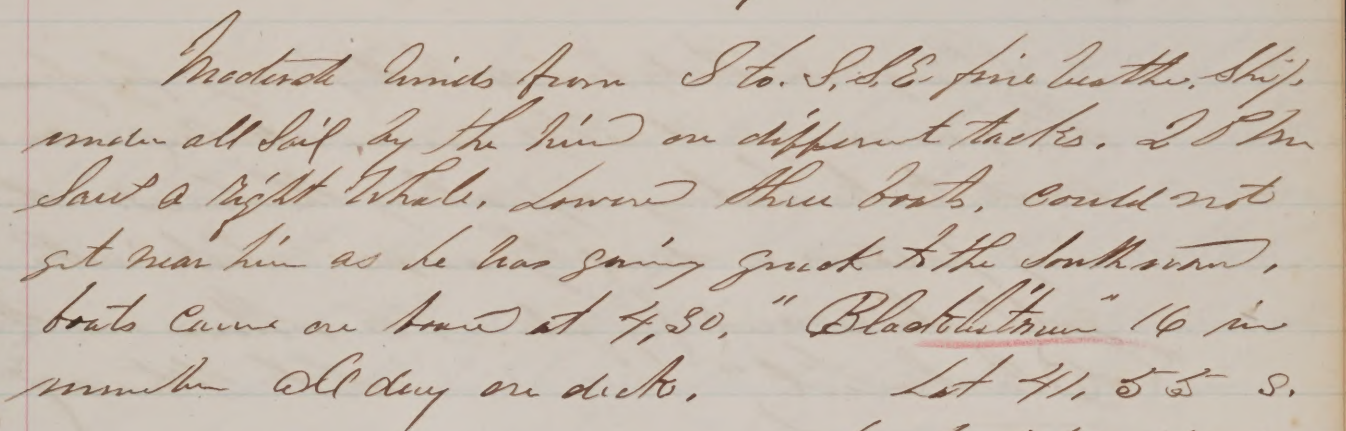 Moderate winds from S to. S.S.E. fine weather. Ship
under all Sail by the wind on different tacks. 2 P M
Saw a right Whale. Lowered three boats. could not
get near him as he was going quick to the Southward.
boats came on board at 4,30. " " 16 in
number all day on deck. Lat 41, 55 S.